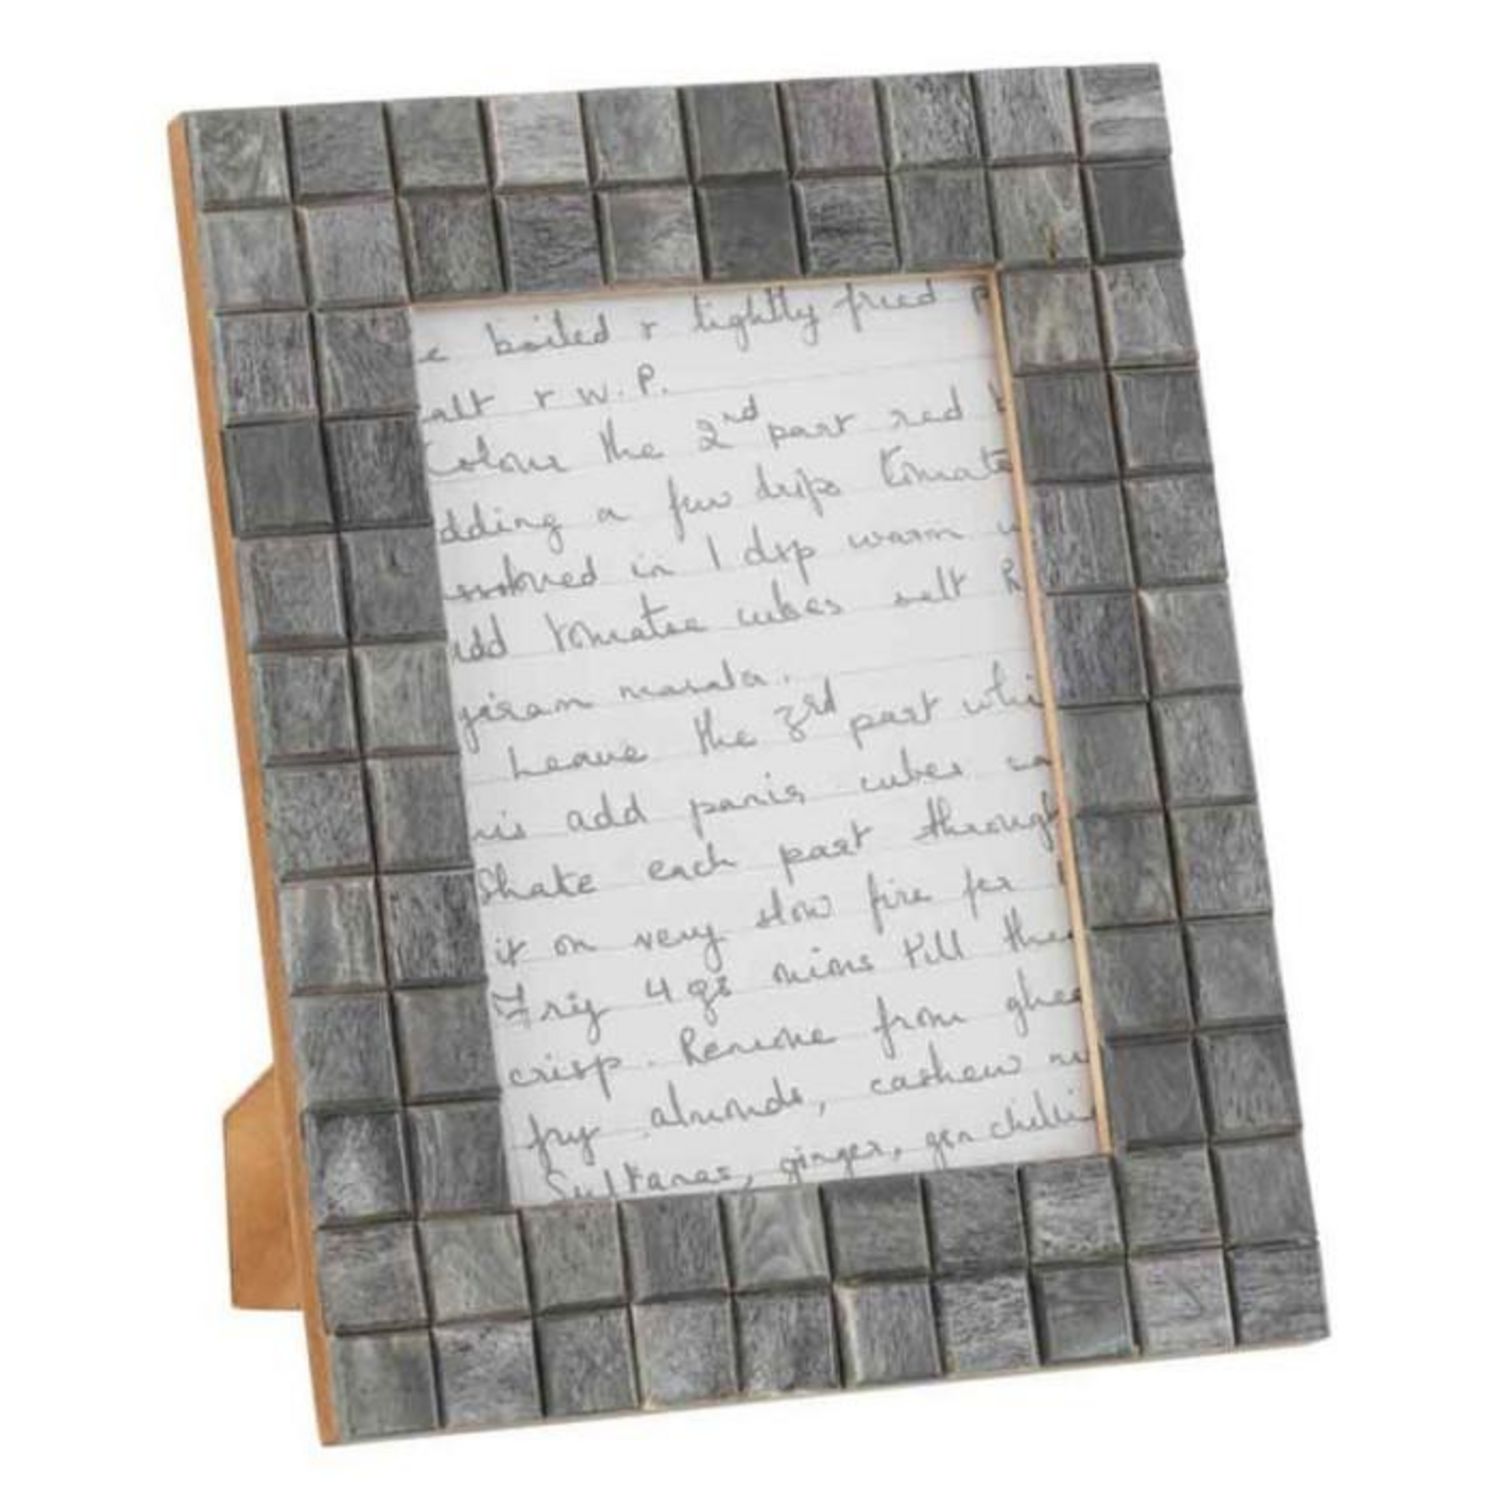 e boiled & lightly fried p
alt & W.P.
Colour the 2nd part red b
dding a few drps tomato
ssolved in 1 dsp warm w
add tomatoe cubes salt R
garam masala.
Leave the 3rd part whi
his add panir cubes sa
Shake each part through
it on very slow fire for 1
Fry 4 qs mins till the
crisp. Remove from ghee
fry almonds, cashew nu
Sultanas, ginger, grn chilli